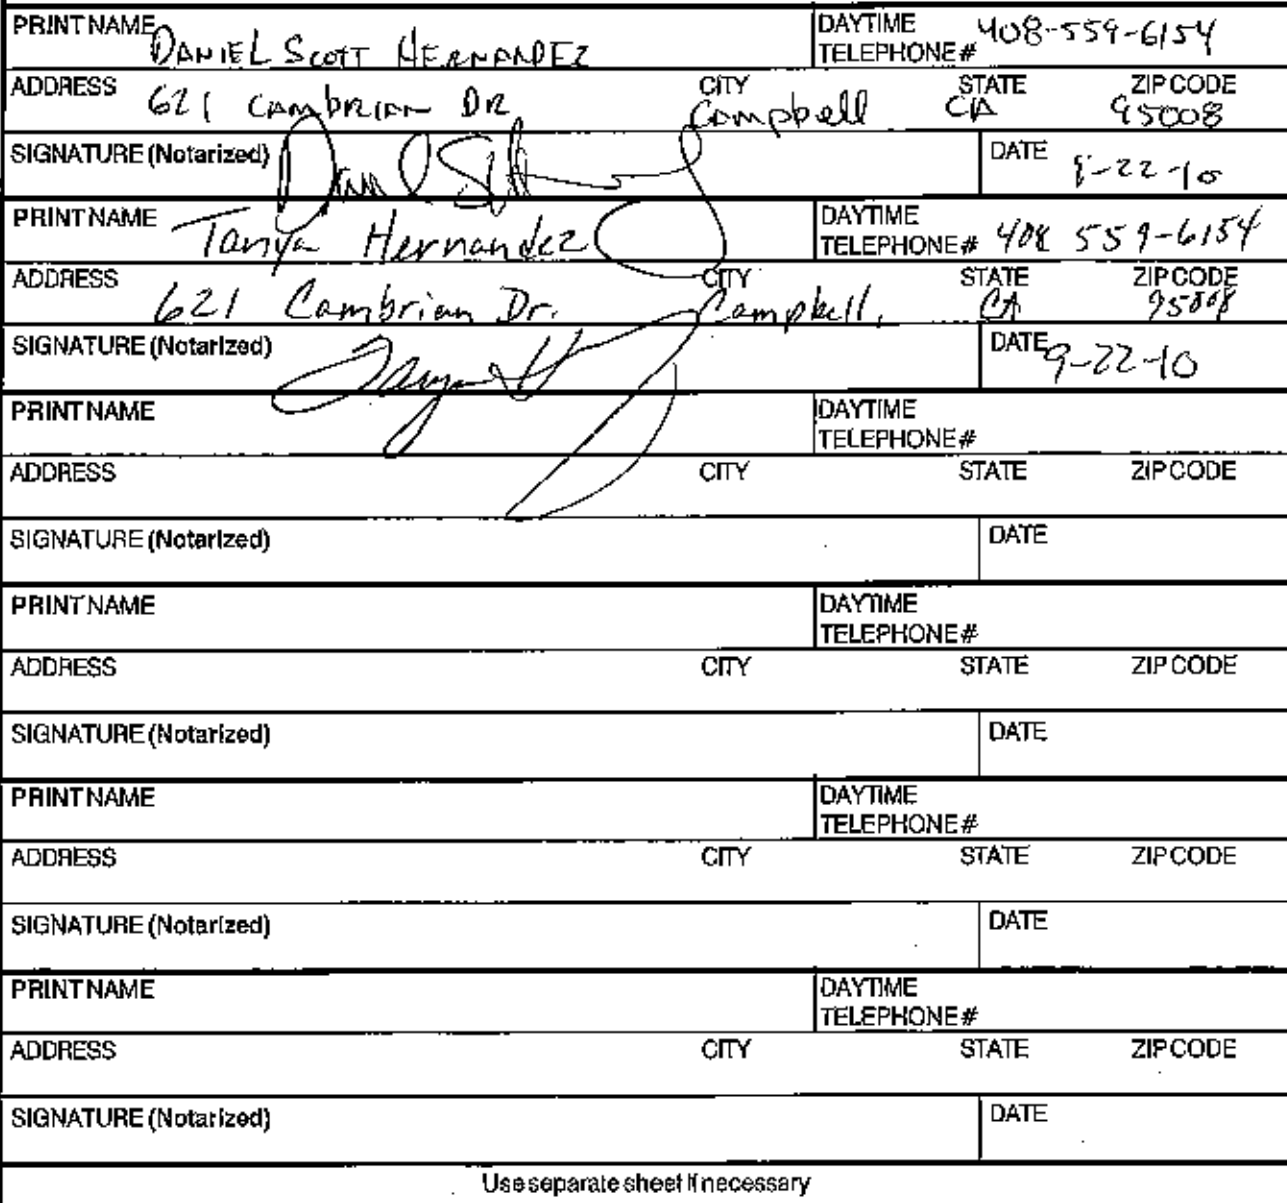 PRINT NAME DANIEL SCOTT HERNANDEZ DAYTIME TELEPHONE# 408-559-6154
ADDRESS 621 CAMBRIAN DR CITY Campbell STATE CA ZIP CODE 95008
SIGNATURE (Notarized) DATE 9-22-10
PRINT NAME Tanya Hernandez DAYTIME TELEPHONE# 408 559-6154
ADDRESS 621 Cambrian Dr. CITY Campbell, STATE CA ZIP CODE 95008
SIGNATURE (Notarized) DATE 9-22-10
PRINT NAME DAYTIME TELEPHONE#
ADDRESS CITY STATE ZIP CODE
SIGNATURE (Notarized) DATE
PRINT NAME DAYTIME TELEPHONE#
ADDRESS CITY STATE ZIP CODE
SIGNATURE (Notarized) DATE
PRINT NAME DAYTIME TELEPHONE#
ADDRESS CITY STATE ZIP CODE
SIGNATURE (Notarized) DATE
PRINT NAME DAYTIME TELEPHONE#
ADDRESS CITY STATE ZIP CODE
SIGNATURE (Notarized) DATE
Use separate sheet if necessary